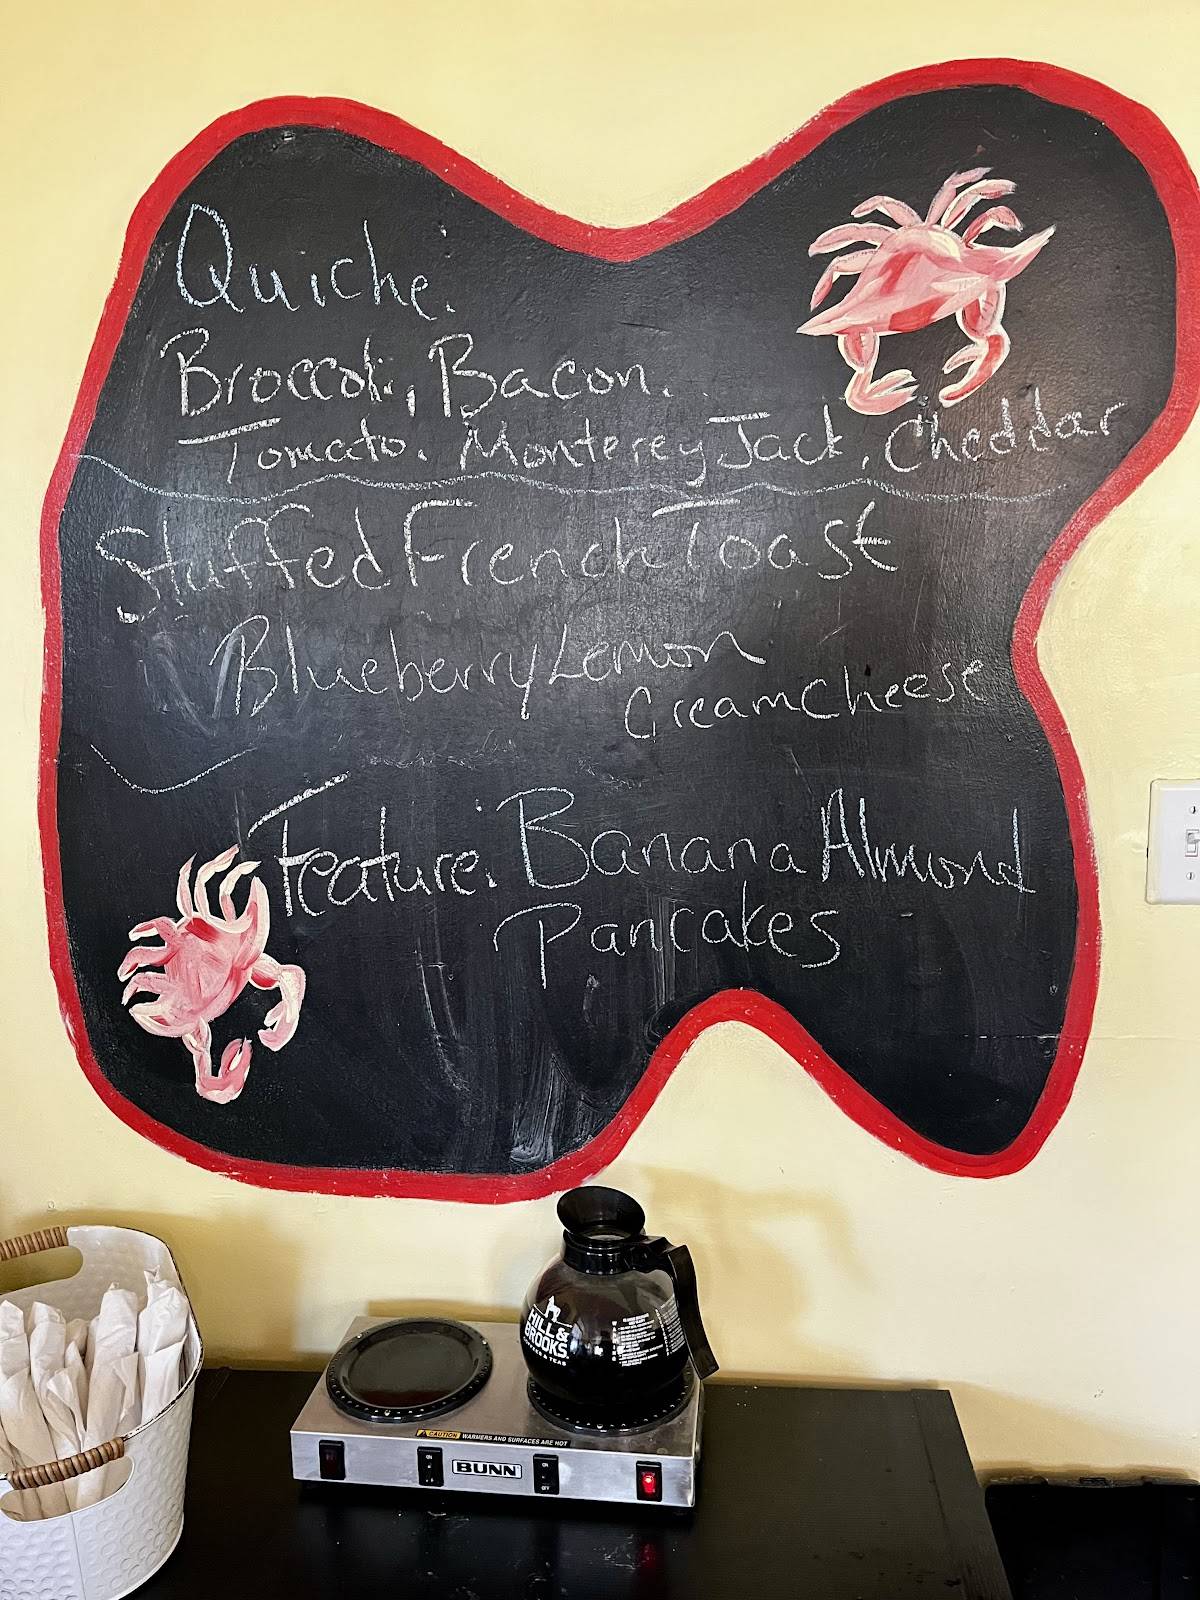 Quiche:
Broccoli, Bacon.
Tomato. Monterey Jack, Cheddar
Stuffed French Toast
Blueberry Lemon
Cream Cheese
Feature: Banana Almond
Pancakes
HILL &
BROOKS
COFFEE & TEAS
CAUTION WARMERS AND SURFACES ARE HOT
ON
BUNN
ON
OFF